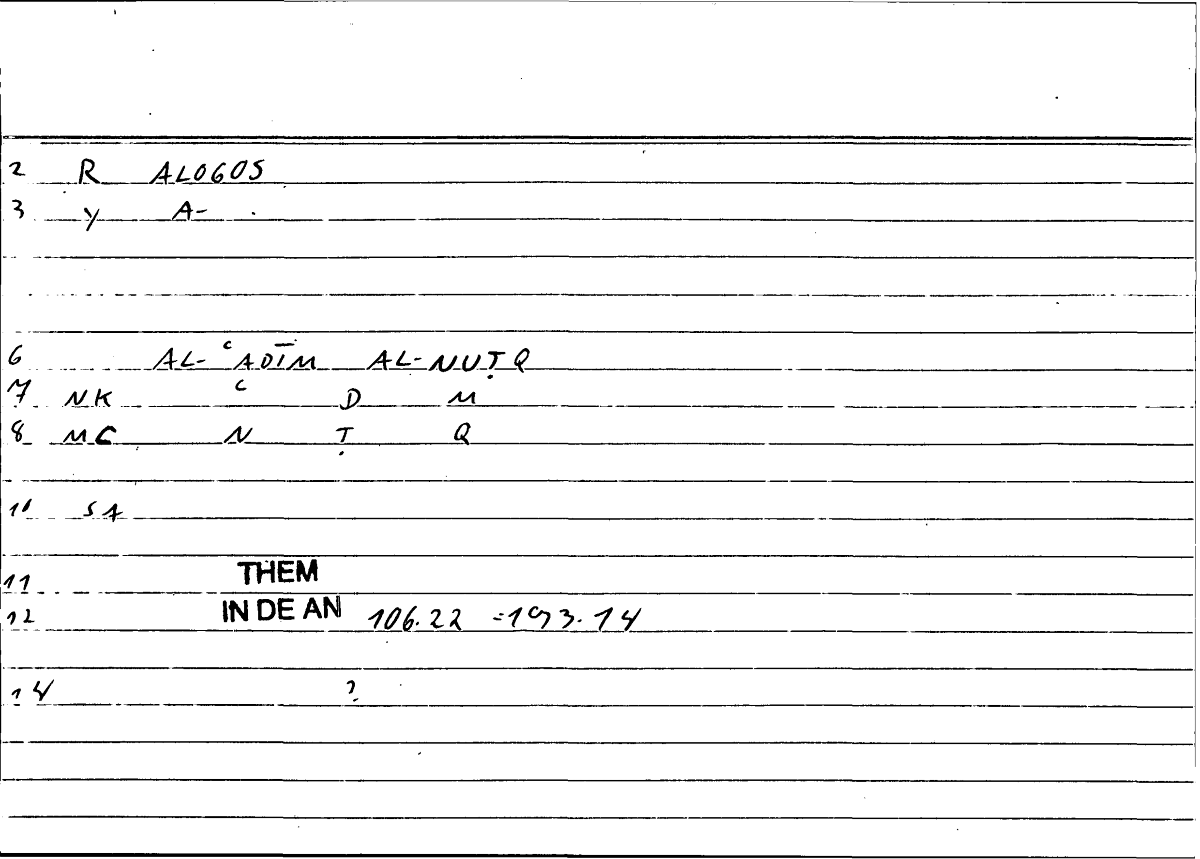 2 R ALOGOS
3 Y A-
6 AL-ʿADĪM AL-NUṬQ
7 NK ʿ D M
8 MC N Ṭ Q
10 SA
11 THEM
12 IN DE AN 106.22 =193.14
14 ?